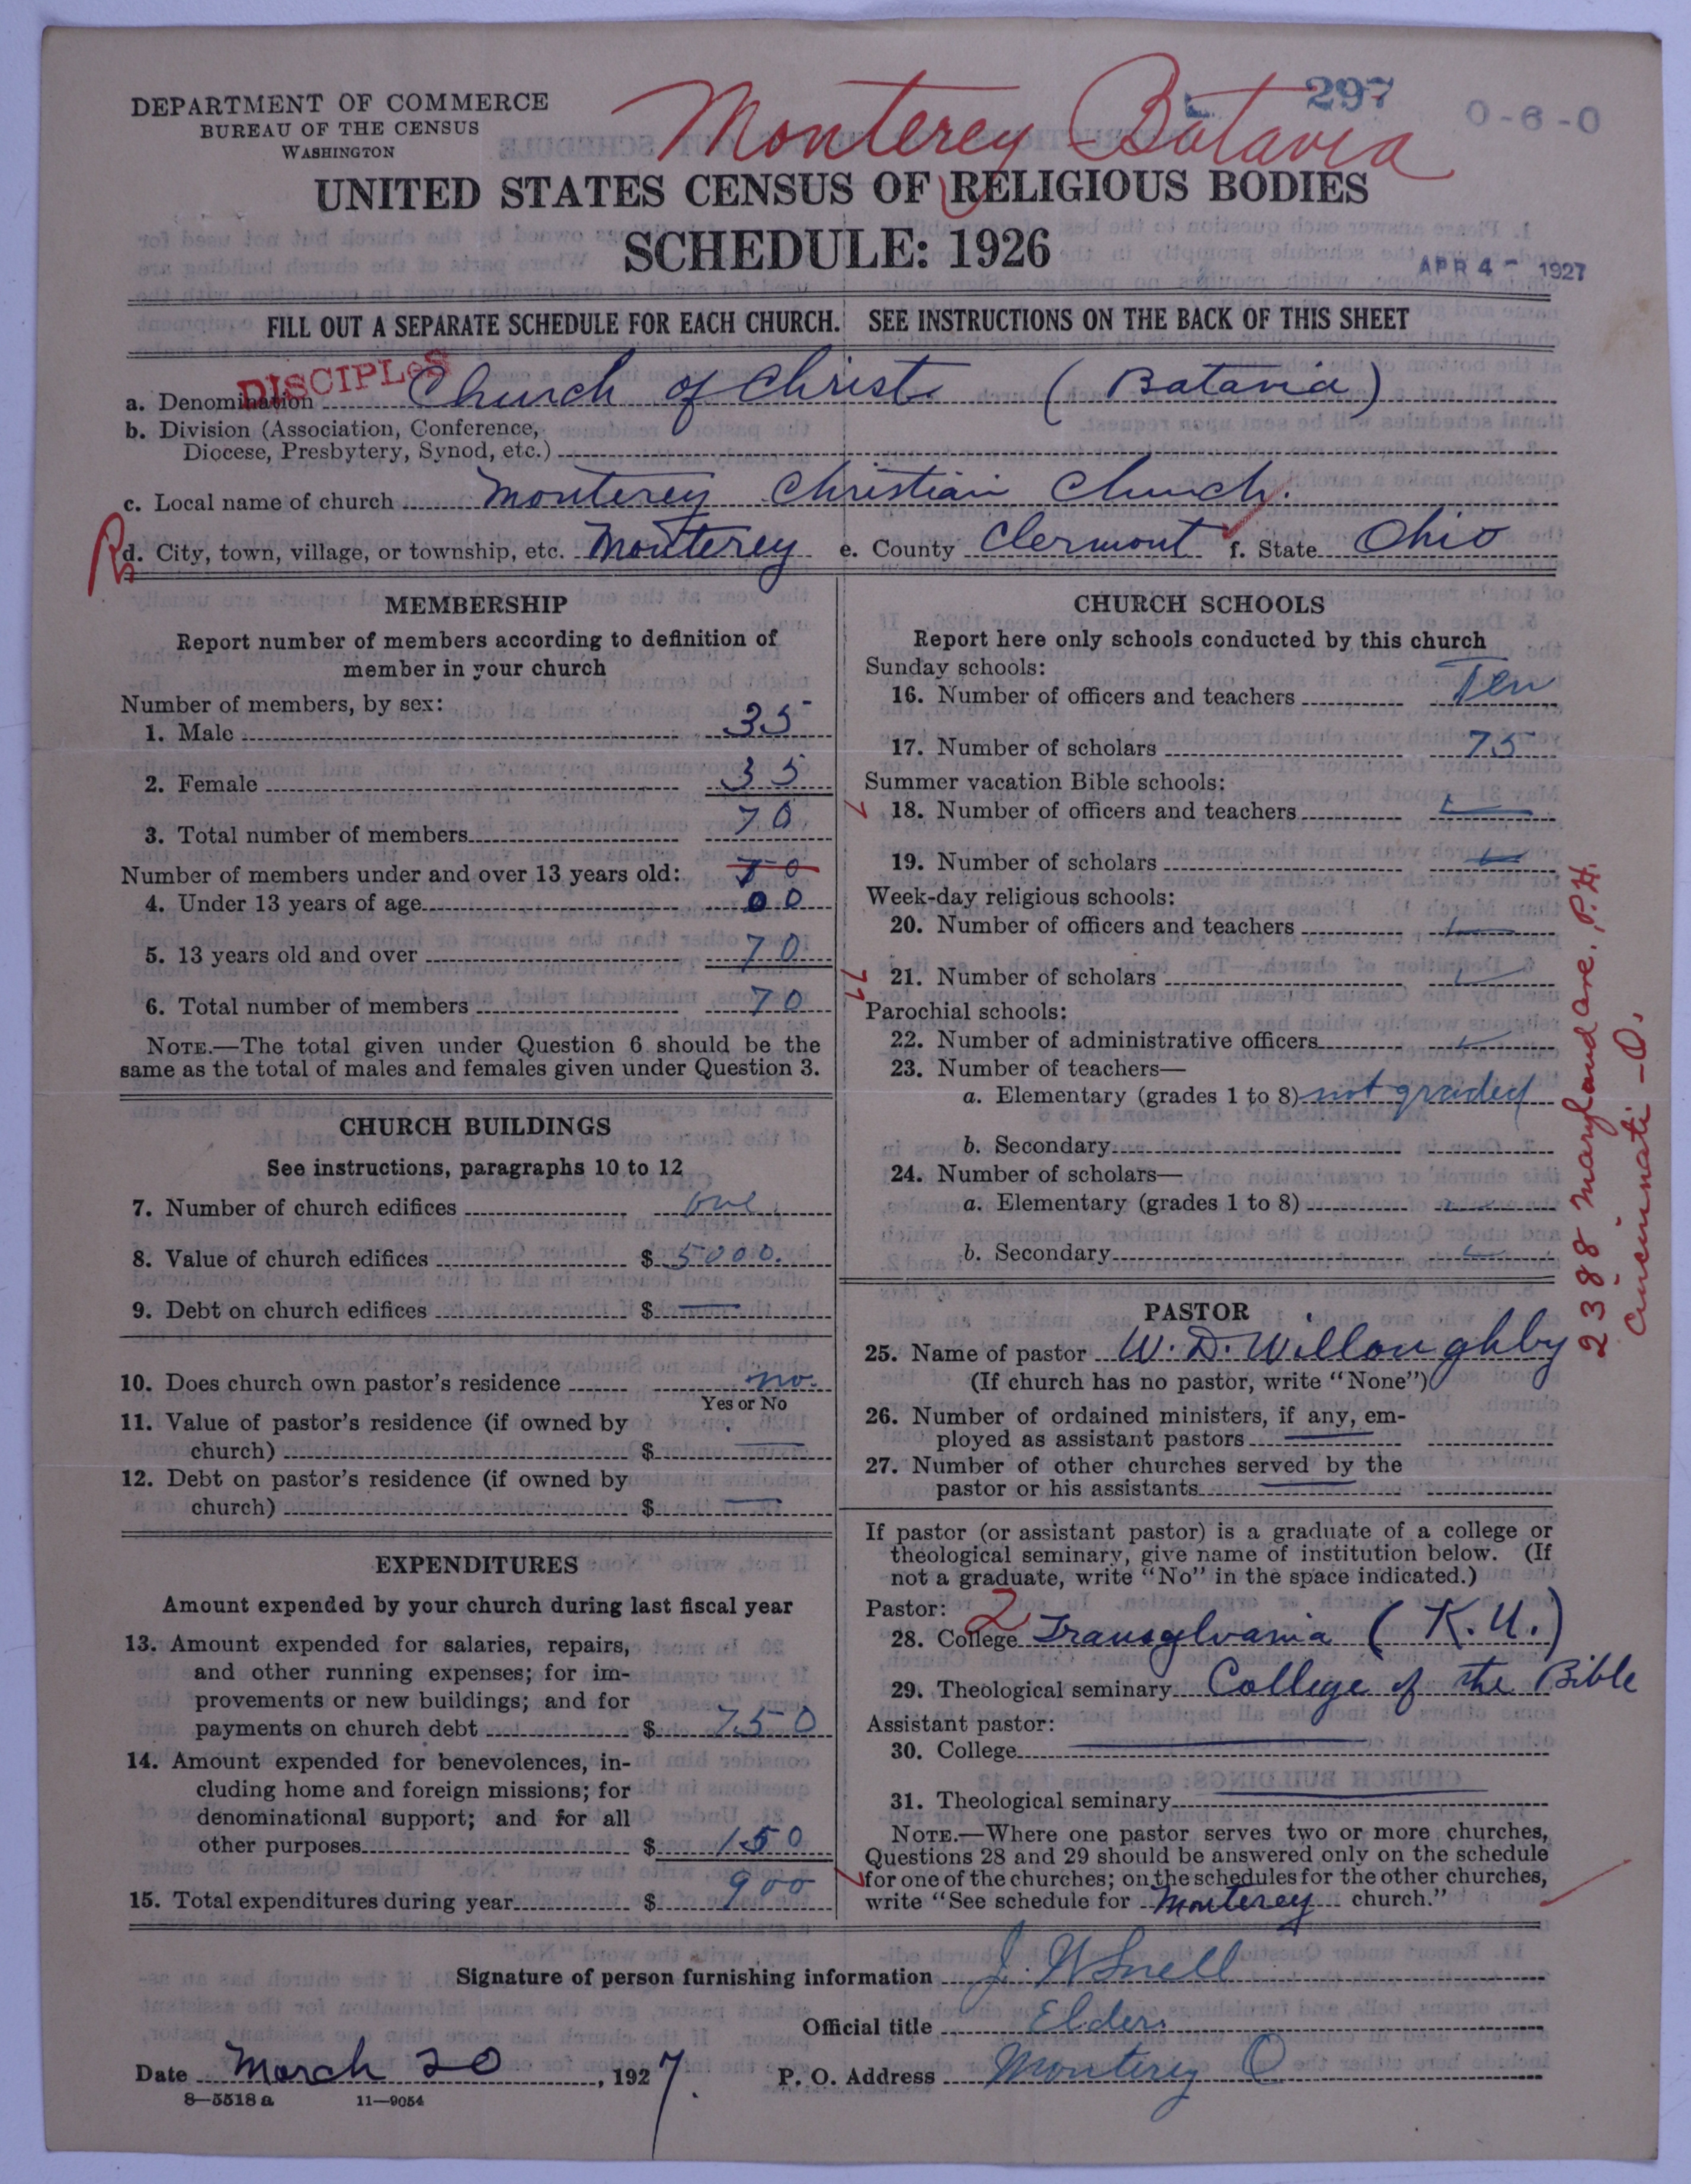 Monterey Batavia
297
0-6-0
DEPARTMENT OF COMMERCE
BUREAU OF THE CENSUS
WASHINGTON
UNITED STATES CENSUS OF RELIGIOUS BODIES
SCHEDULE: 1926
APR 4 - 1927
FILL OUT A SEPARATE SCHEDULE FOR EACH CHURCH. SEE INSTRUCTIONS ON THE BACK OF THIS SHEET
DISCIPLES
a. Denomination Church of Christ (Batavia)
b. Division (Association, Conference,
Diocese, Presbytery, Synod, etc.)
c. Local name of church Monterey Christian Church.
d. City, town, village, or township, etc. Monterey e. County Clermont f. State Ohio
MEMBERSHIP
Report number of members according to definition of
member in your church
Number of members, by sex:
1. Male 35
2. Female 35
3. Total number of members 70
Number of members under and over 13 years old: 70
4. Under 13 years of age 00
5. 13 years old and over 70
6. Total number of members 70
NOTE.—The total given under Question 6 should be the
same as the total of males and females given under Question 3.
CHURCH BUILDINGS
See instructions, paragraphs 10 to 12
7. Number of church edifices one
8. Value of church edifices $ 5000.
9. Debt on church edifices $ —
10. Does church own pastor's residence no.
Yes or No
11. Value of pastor's residence (if owned by
church) $ —
12. Debt on pastor's residence (if owned by
church) $ —
EXPENDITURES
Amount expended by your church during last fiscal year
13. Amount expended for salaries, repairs,
and other running expenses; for im-
provements or new buildings; and for
payments on church debt $ 750
14. Amount expended for benevolences, in-
cluding home and foreign missions; for
denominational support; and for all
other purposes $ 150
15. Total expenditures during year $ 900
CHURCH SCHOOLS
Report here only schools conducted by this church
Sunday schools:
16. Number of officers and teachers Ten
17. Number of scholars 75
Summer vacation Bible schools:
18. Number of officers and teachers
19. Number of scholars
Week-day religious schools:
20. Number of officers and teachers
21. Number of scholars
Parochial schools:
22. Number of administrative officers
23. Number of teachers—
a. Elementary (grades 1 to 8) not graded
b. Secondary
24. Number of scholars—
a. Elementary (grades 1 to 8)
b. Secondary
PASTOR
25. Name of pastor W. D. Willoughby
(If church has no pastor, write "None")
26. Number of ordained ministers, if any, em-
ployed as assistant pastors —
27. Number of other churches served by the
pastor or his assistants —
If pastor (or assistant pastor) is a graduate of a college or
theological seminary, give name of institution below. (If
not a graduate, write "No" in the space indicated.)
Pastor: 2
28. College Transylvania (K.U.)
29. Theological seminary College of the Bible
Assistant pastor:
30. College —
31. Theological seminary —
NOTE.—Where one pastor serves two or more churches,
Questions 28 and 29 should be answered only on the schedule
for one of the churches; on the schedules for the other churches,
write "See schedule for Monterey church."
2388 Maryland ave. P.H.
Cincinnati - O.
Signature of person furnishing information J. W Snell
Official title Elder.
Date March 20, 1927. P. O. Address Monterey O
8—5518 a 11—9054